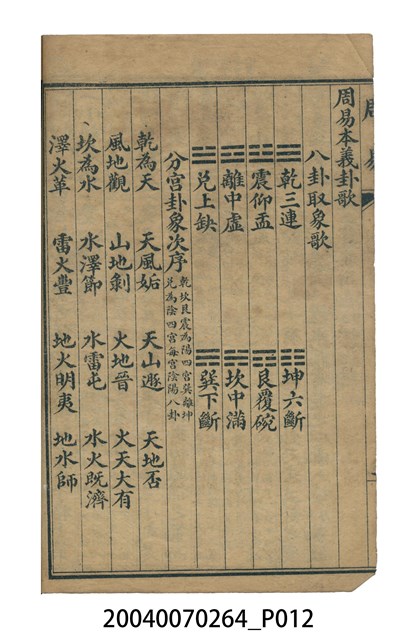 周易
周易本義卦歌
八卦取象歌
☰乾三連 ☷坤六斷
☳震仰盂 ☶艮覆碗
☲離中虛 ☵坎中滿
☱兌上缺 ☴巽下斷
分宮卦象次序 乾坎艮震為陽四宮巽離坤
兌為陰四宮每宮陰陽八卦
乾為天 天風姤 天山遯 天地否
風地觀 山地剝 火地晉 火天大有
坎為水 水澤節 水雷屯 水火既濟
澤火革 雷火豐 地火明夷 地水師
20040070264_P012